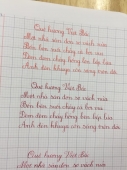 Quê hương Việt Bắc
Một nhà sàn đơn sơ vách nứa
Bốn bên suối chảy cá bơi vui
Đêm đêm cháy hồng bên bếp lửa
Ánh đèn khuya còn sáng trên đồi
Quê hương Việt Bắc
Một nhà sàn đơn sơ vách nứa
Bốn bên suối chảy cá bơi vui
Đêm đêm cháy hồng bên bếp lửa
Ánh đèn khuya còn sáng trên đồi
Quê hương Việt Bắc
Một nhà sàn đơn sơ vách nứa